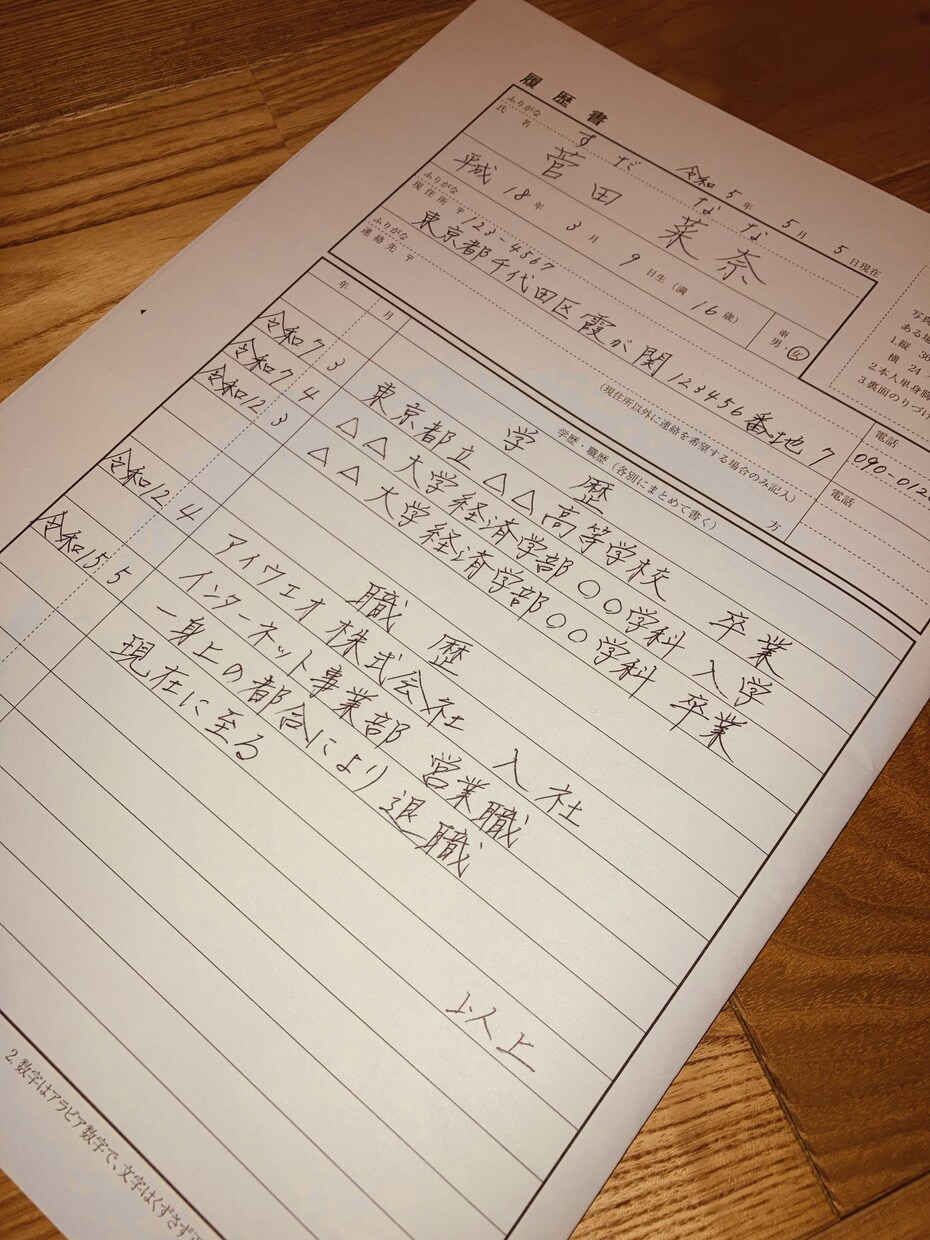 履歴書 令和5年 5月 5日現在
ふりがな すだ なな
氏名 菅田 菜奈
平成 18年 3月 9日生 (満 16歳) ※ 男・女
ふりがな
現住所 〒123-4567
東京都千代田区霞が関123456番地7
電話
090-012
ふりがな
連絡先 〒 (現住所以外に連絡を希望する場合のみ記入) 方
電話
写真
ある場
1.縦 36
横 24
2.本人単身胸
3.裏面のりづけ
年 月 学歴・職歴(各別にまとめて書く)
学 歴
令和7 3 東京都立△△高等学校 卒業
令和7 4 △△大学経済学部○○学科 入学
令和12 3 △△大学経済学部○○学科 卒業
職 歴
令和12 4 アイウエオ株式会社 入社
インターネット事業部 営業職
令和15 5 一身上の都合により退職
現在に至る
以上
2.数字はアラビア数字で、文字はくずさず正